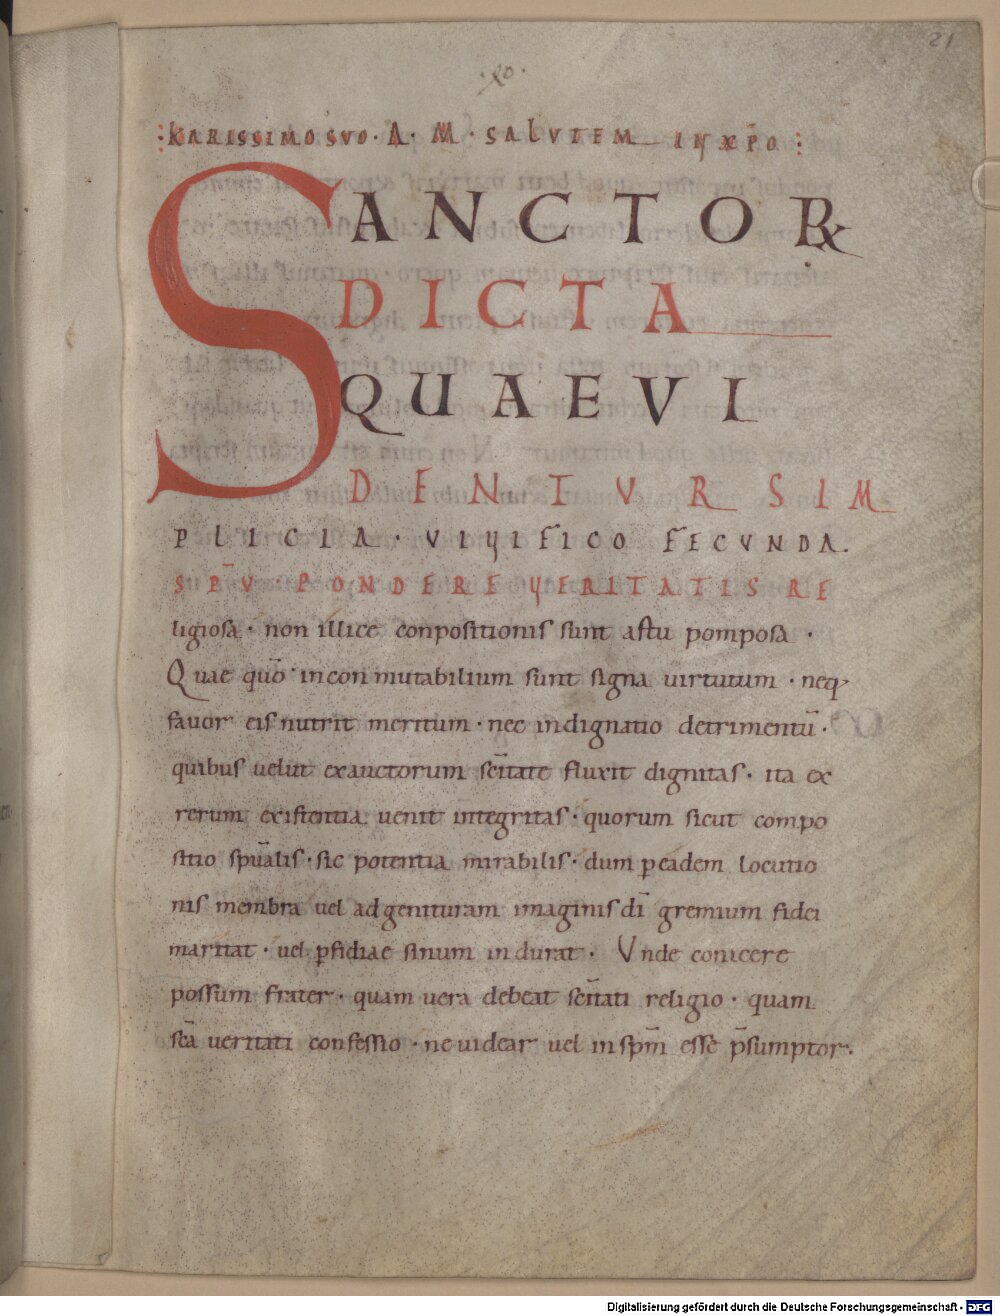 21
·xp̄o·
KARISSIMO SVO · A · M · SALVTEM IN XP̄O
SANCTORꝜ
DICTA
QUAE VI
DENTVR SIM
PLICIA · VIVIFICO FECVNDA.
SP̄V · PONDERE VERITATIS RE
ligiosa · non illice conpositionis sunt astu pomposa ·
Quae quō · inconmutabilium sunt signa uirtutum · neq;
fauor eis nutrit meritum · nec indignatio detrimentū ·
quibus uelut exauctorum sc̄itate fluxit dignitas · ita ex
rerum existentia uenit integritas · quorum sicut compo
sitio sp̄ualis · sic potentia mirabilis · dum p̱ eadem locutio
nis membra uel adgenituram imaginis dī gremium fidei
maritat · uel p̱fidiae sinum indurat · Vnde conicere
possum frater · quam uera debeat sc̄itati religio · quam
sc̄a ueritati confessio · ne uidear uel in sp̄m esse p̄sumptor ·
Digitalisierung gefördert durch die Deutsche Forschungsgemeinschaft - DFG